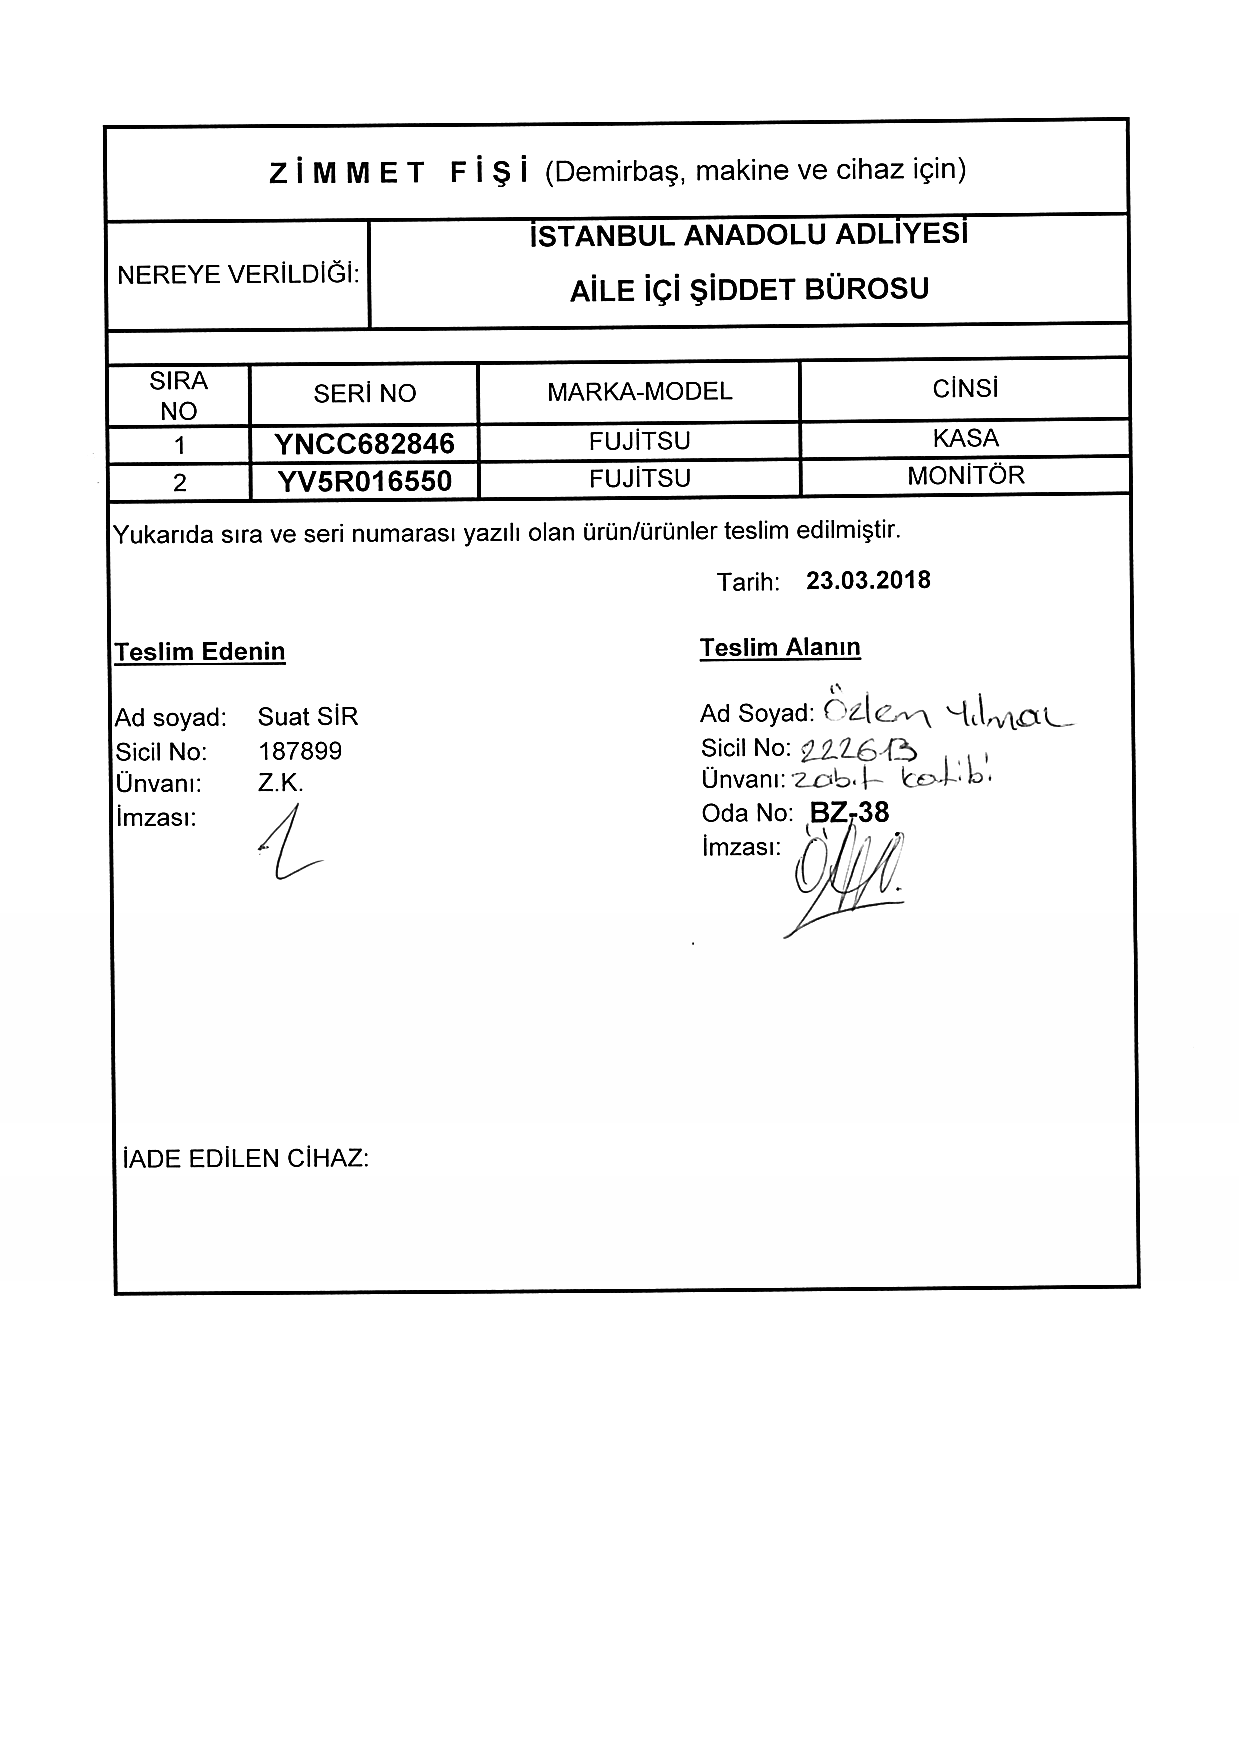 ZİMMET FİŞİ (Demirbaş, makine ve cihaz için)
NEREYE VERİLDİĞİ:
İSTANBUL ANADOLU ADLİYESİ
AİLE İÇİ ŞİDDET BÜROSU
SIRA NO SERİ NO MARKA-MODEL CİNSİ
1 YNCC682846 FUJİTSU KASA
2 YV5R016550 FUJİTSU MONİTÖR
Yukarıda sıra ve seri numarası yazılı olan ürün/ürünler teslim edilmiştir.
Tarih: 23.03.2018
Teslim Edenin
Ad soyad: Suat SİR
Sicil No: 187899
Ünvanı: Z.K.
İmzası:
Teslim Alanın
Ad Soyad: Özlem Yılmaz
Sicil No:
Ünvanı: zabıt katibi
Oda No: BZ-38
İmzası:
İADE EDİLEN CİHAZ: